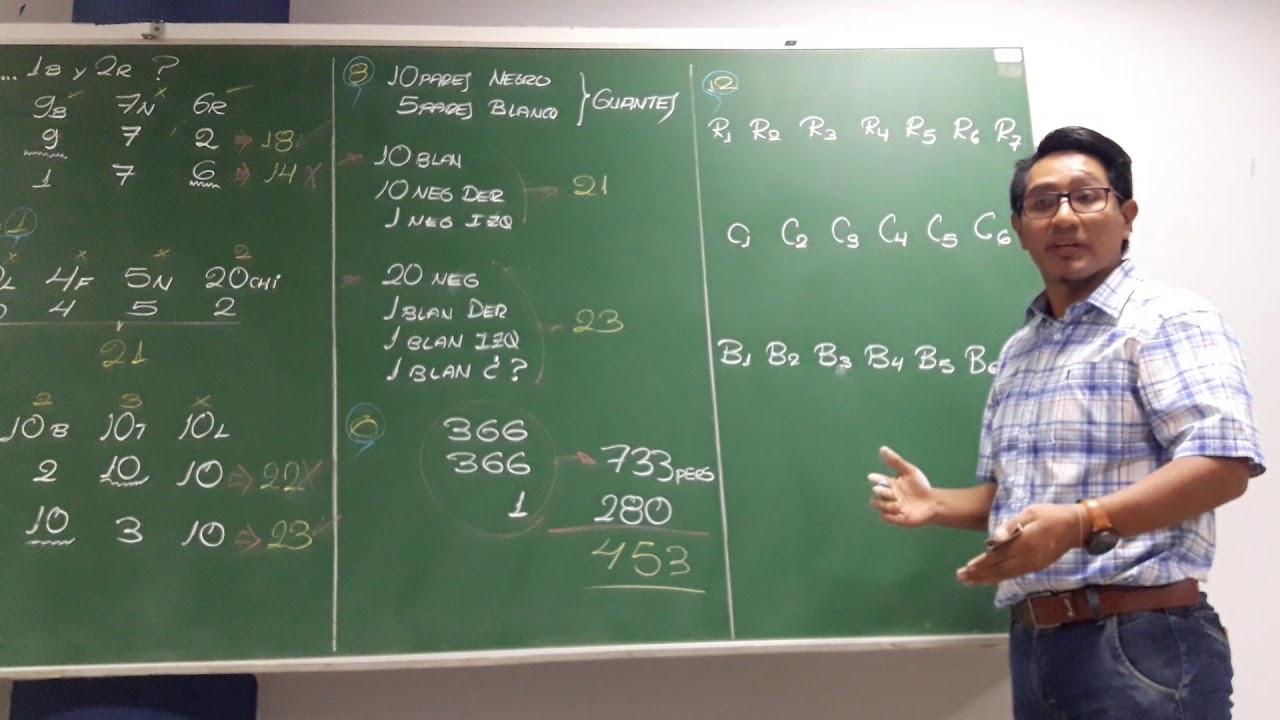 ... 1B y 2R ?
9B 7N 6R
9 7 2 → 18
1 7 6 → 14 x
1
x x x 2
L 4F 5N 20CHI
4 5 2
21
2 3 x
10B 10T 10L
2 10 10 → 22 x
10 3 10 → 23
8
10 PARES NEGRO
5 PARES BLANCO } GUANTES
10 BLAN
10 NEG DER → 21
1 NEG IZQ
20 NEG
1 BLAN DER
1 BLAN IZQ → 23
1 BLAN ¿?
366
366 → 733 PERS
1 280
453
12
R1 R2 R3 R4 R5 R6 R7
C1 C2 C3 C4 C5 C6
B1 B2 B3 B4 B5 B6